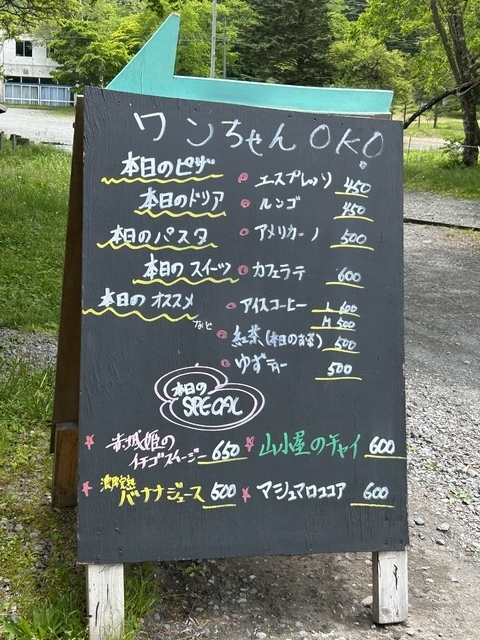 ワンちゃん OKO
本日のピザ
本日のドリア
本日のパスタ
本日のスイーツ
本日のオススメ
など
エスプレッソ 450
ルンゴ 450
アメリカーノ 500
カフェラテ 600
アイスコーヒー L 600
M 500
紅茶(本日のお茶) 500
ゆずティー 500
本日の
SPECIAL
赤城姫の
イチゴスムージー 650
山小屋のチャイ 600
濃厚完熟
バナナジュース 500
マシュマロココア 600